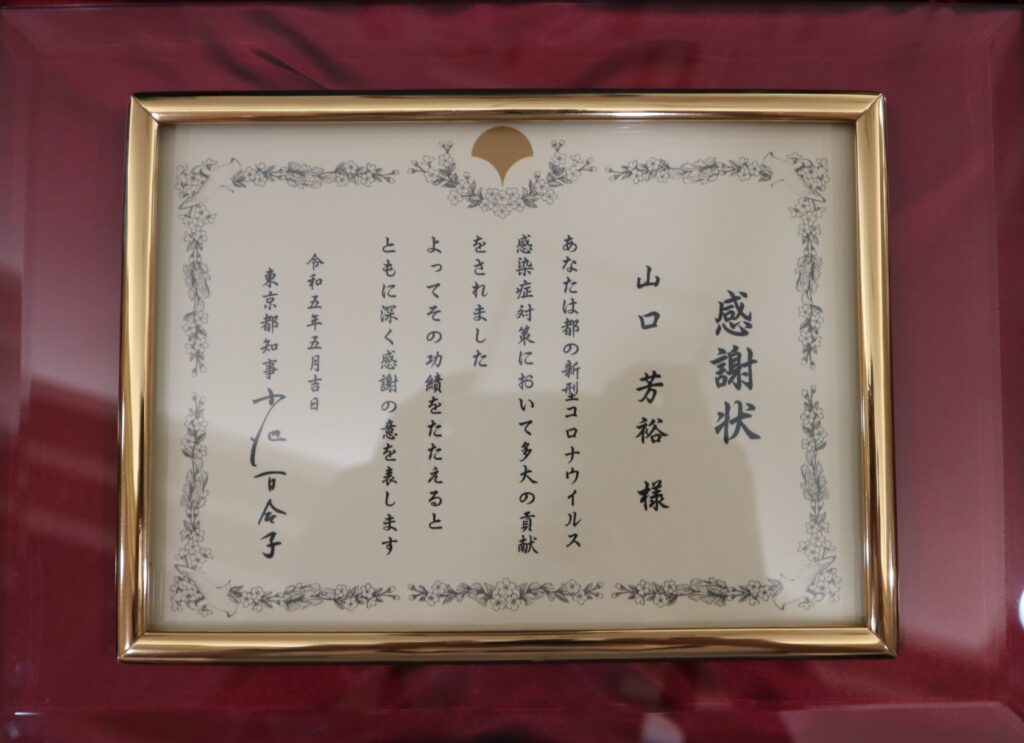 感謝状
山口 芳裕 様
あなたは都の新型コロナウイルス
感染症対策において多大の貢献
をされました
よってその功績をたたえると
ともに深く感謝の意を表します
令和五年五月吉日
東京都知事 小池百合子